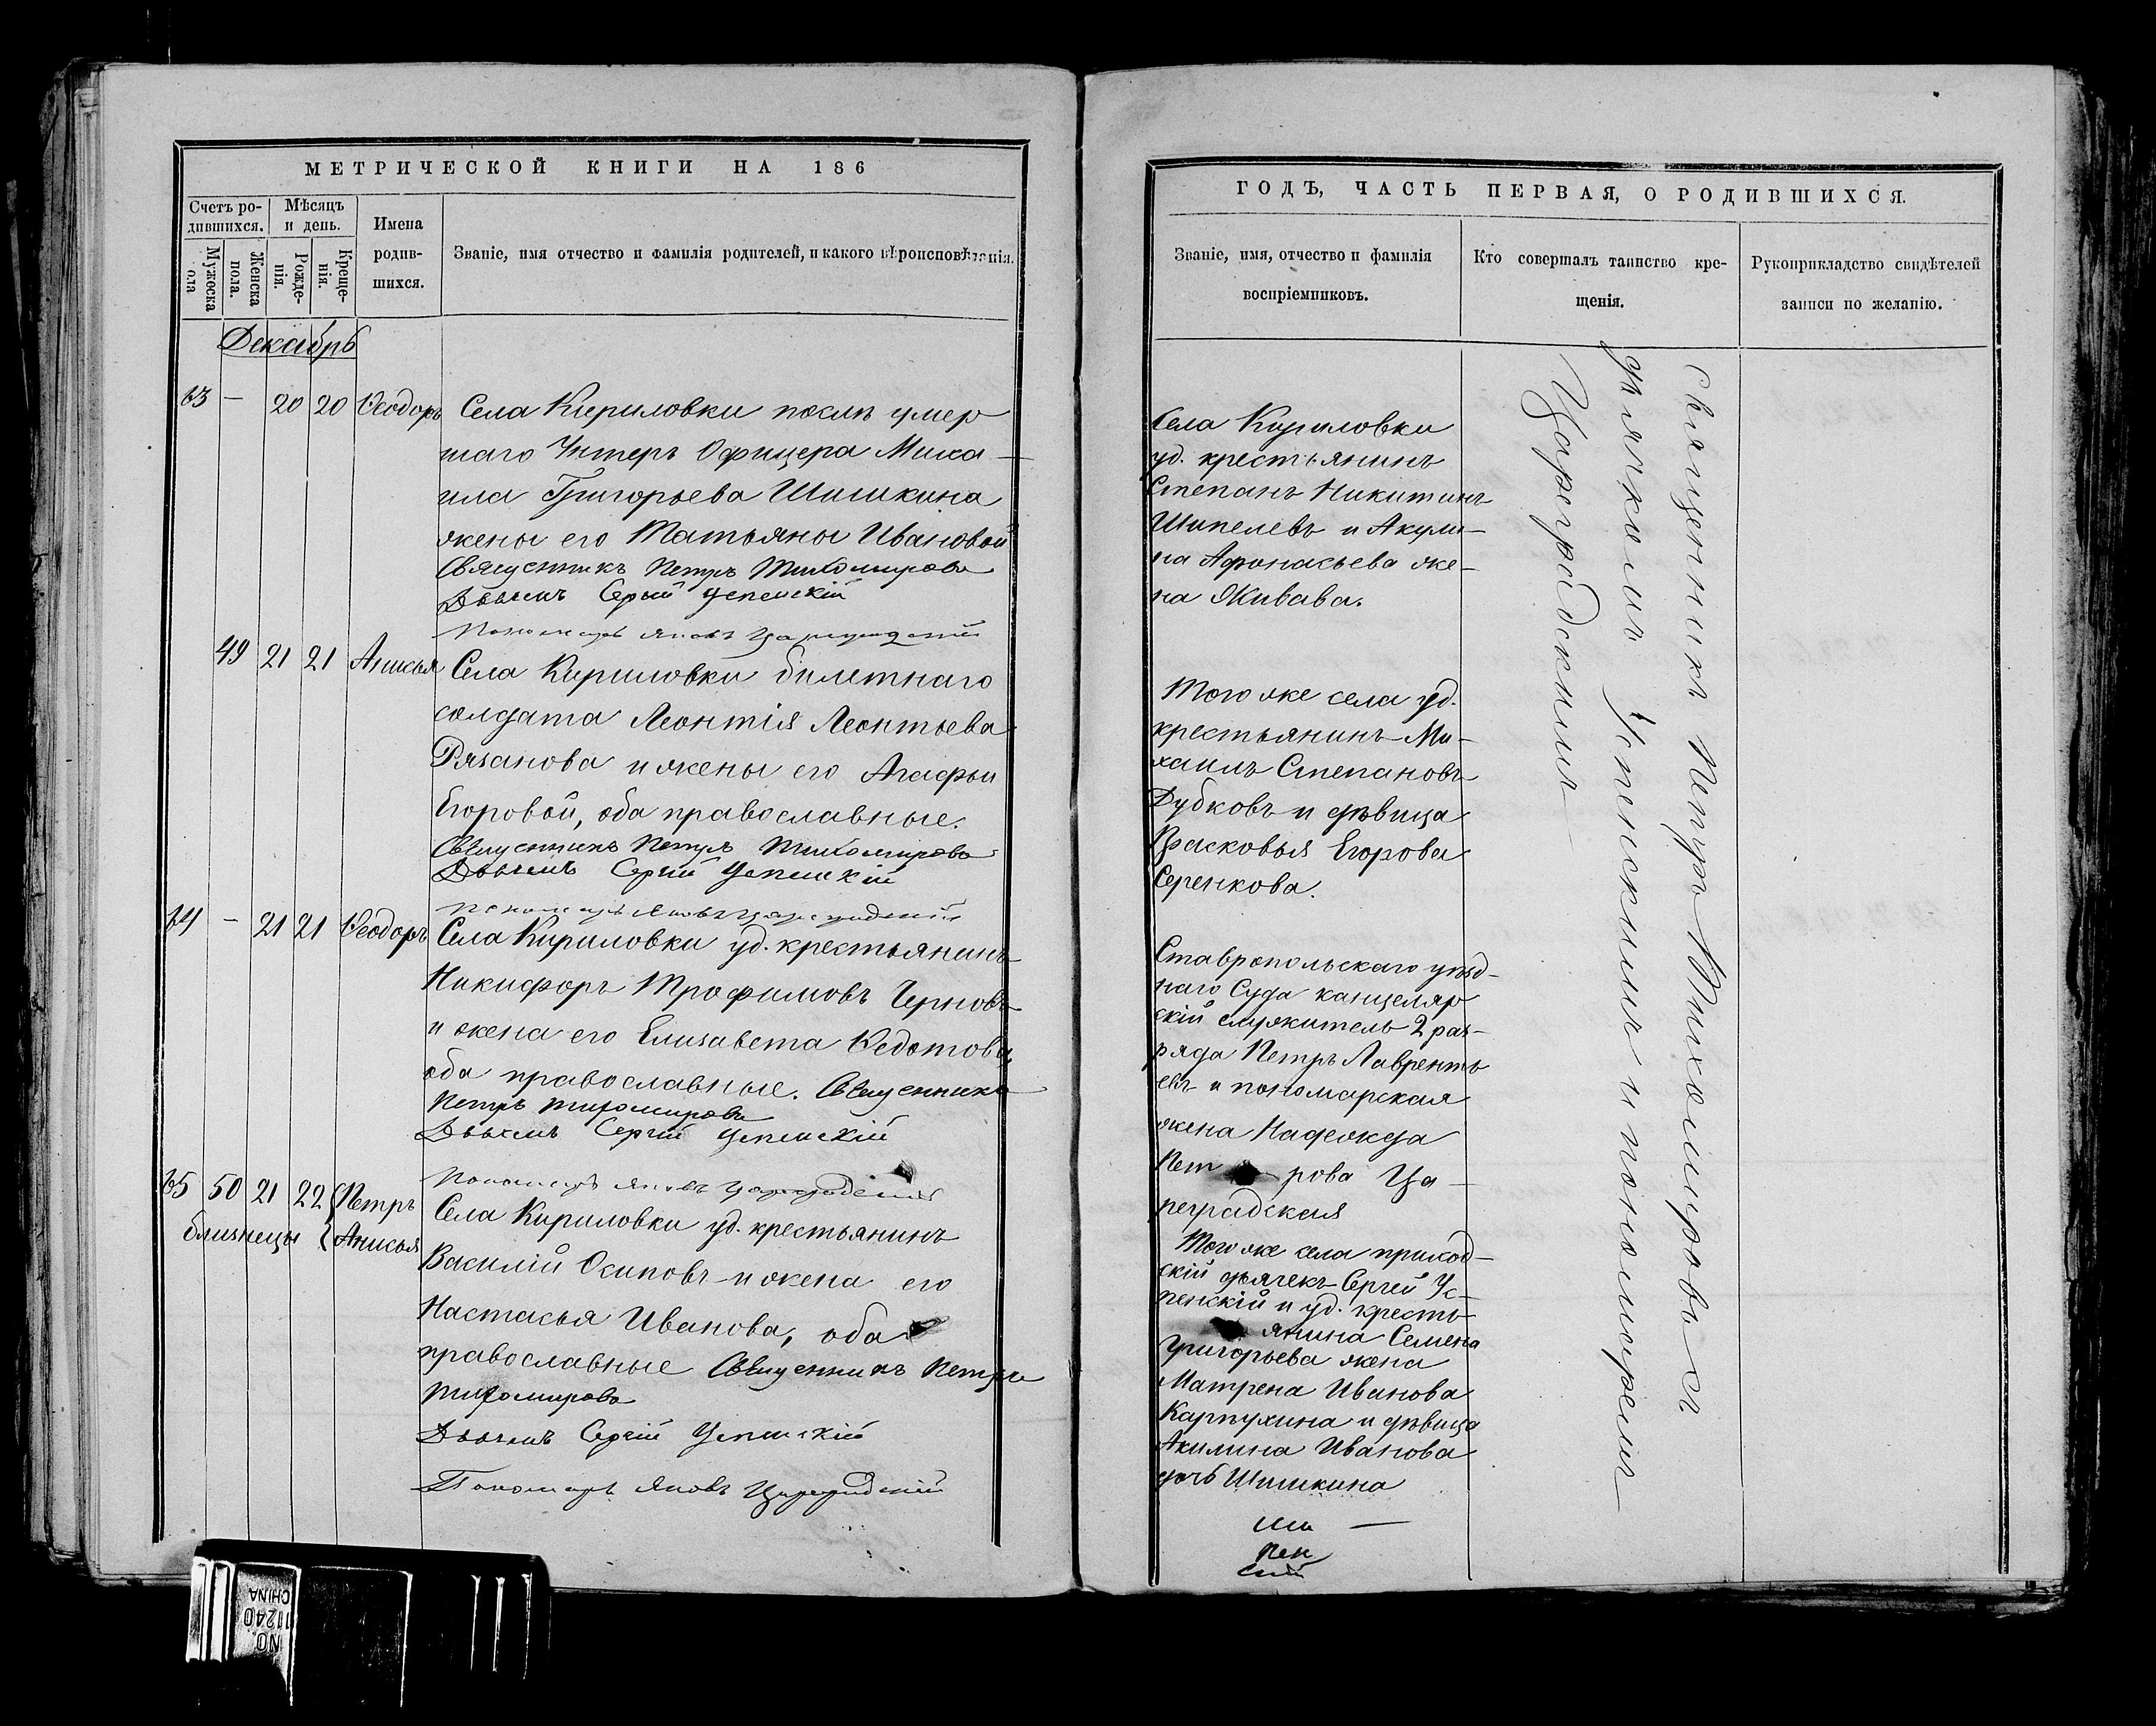 МЕТРИЧЕСКОЙ КНИГИ НА 186
Счетъ ро-
дившихся.
Мѣсяцъ
и день.
Мужеска
пола
Женска
пола.
Рожде-
нія.
Креще-
нія.
Имена
родив-
шихся.
Званіе, имя отчество и фамилія родителей, и какого вѣроисповѣданія.
Декабрь
63 — 20 20 Ѳеодоръ
Села Кириловки послѣ умер
шаго Унтеръ Офицера Миха—
ила Григорьева Шишкина
жены его Татьяны Ивановой
Священникъ Петръ Тихомировъ
Дьячекъ Сергій Успенскій
Пономарь Яковъ Цареградскій
49 21 21 Анисья
Села Кириловки билетнаго
солдата Леонтія Леонтьева
Рязанова и жены его Агафьи
Егоровой, оба православные.
Священникъ Петръ Тихомировъ
Дьячекъ Сергій Успенскій
Пономарь Яковъ Цареградскій
64 — 21 21 Ѳеодоръ
Села Кириловки уд. крестьянинъ
Никифоръ Трофимовъ Черновъ
и жена его Елизавета Ѳедотова,
оба православные. Священникъ
Петръ Тихомировъ
Дьячекъ Сергій Успенскій
Пономарь Яковъ Цареградскій
65 50 21 22 {Петръ
близнецы {Анисья
Села Кириловки уд. крестьянинъ
Василій Осиповъ и жена его
Настасья Иванова, оба
православные Священникъ Петръ
Тихомировъ
Дьячекъ Сергій Успенскій
Пономарь Яковъ Цареградскій
ГОДЪ, ЧАСТЬ ПЕРВАЯ, О РОДИВШИХСЯ.
Званіе, имя, отчество и фамилія
воспріемниковъ.
Кто совершалъ таинство кре-
щенія.
Рукоприкладство свидѣтелей
записи по желанію.
Села Кириловки
уд. крестьянинъ
Степанъ Никитинъ
Шипелевъ и Акули—
на Афонасьева же—
на Живава.
Того же села уд.
крестьянинъ Ми—
хаилъ Степановъ
Дубковъ и дѣвица
Прасковья Егорова
Серенкова.
Ставропольскаго уѣзд—
наго Суда канцеляр
скій служитель 2 раз—
ряда Петръ Лавренть
евъ и пономарская
жена Надежда
Пет рова Ца—
реградская
Того же села приход—
скій дьячекъ Сергей Ус—
пенскій и уд. кресть—
янина Семена
Григорьева жена
Матрена Иванова
Карпухина и дѣвица
Акилина Иванова
дочь Шишкина
Священникъ Петръ Тихомировъ съ
дьячкомъ Успенскимъ и пономаремъ
Цареградскимъ —
NO.
11240
CHINA